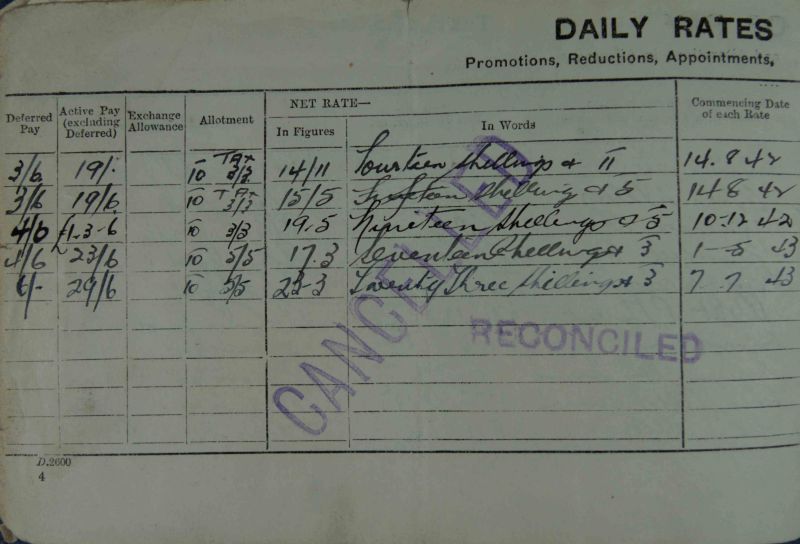 DAILY RATES
Promotions, Reductions, Appointments,
Deferred Pay Active Pay (excluding Deferred) Exchange Allowance Allotment NET RATE— In Figures In Words Commencing Date of each Rate
3/6 19/- 10 Tax 3/3 14/11 Fourteen shillings & 11 14.8 42
3/6 19/6 10 Tax 3/3 15/5 shilling & 5 14 8 42
4/6 £1.3.6 10 3/3 19.5 Nineteen shillings & 5 10.12 42
4/6 23/6 10 5/5 17.3 Seventeen shillings & 3 1-5 43
6/- 29/6 10 5/5 23-3 Twenty Three shillings & 3 7.7 43
CANCELLED
RECONCILED
D.2600
4